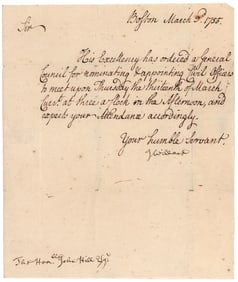 Boston March 3d, 1755.
Sir
His Excellency has ordered a General
Council for nominating & appointing Civil Officers
to meet upon Thursday the thirteenth of March
Curt. at three a Clock in the Afternoon, and
expects your Attendance accordingly.
Your humble Servant.
J Willard
The Honble. John Hill Esqr.